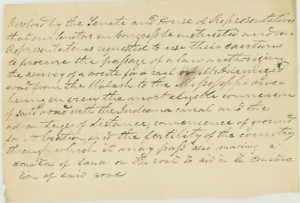 Resolved by the Senate and House of Representatives
that our Senators in Congress be instructed and our
Representatives requested to use their exertions
to procure the passage of a law authorizing
the survey of a route for a rail or McAdamized
road from the Wabash to the Mississippi
having in view the most eligible connexion
of said road with the canal and the
advantages of distance, convenience of ground
for location and the fertility of the country
through which it may pass also making a
donation of land on the route to aid in the construc
tion of said road